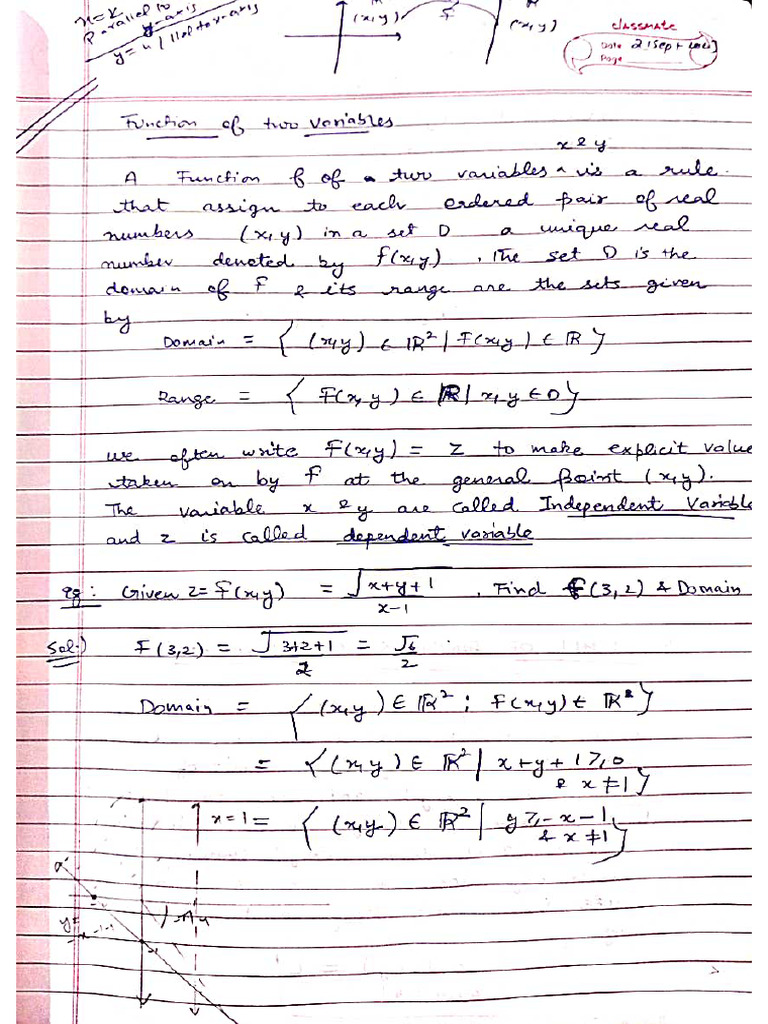 x=k
Parallel to
y-axis
y=4 | llel to x-axis
(x,y)
f
(x,y)
classmate
Date 2 Sep
Page
Function of two variables
x & y
A Function f of two variables ^ is a rule
that assign to each ordered pair of real
numbers (x,y) in a set D a unique real
number denoted by f(x,y). The set D is the
domain of F & its range are the sets given
by
Domain = { (x,y) ∈ ℝ² | F(x,y) ∈ ℝ }
Range = { F(x,y) ∈ ℝ | x,y ∈ D }
we often write F(x,y) = Z to make explicit value
taken on by f at the general point (x,y).
The variable x & y are called Independent Variable
and z is called dependent variable
eg: Given Z = F(x,y) = √x+y+1 / x-1 . Find f(3,2) & Domain
Sol.) F(3,2) = √3+2+1 / 2 = √6 / 2
Domain = { (x,y) ∈ ℝ² ; F(x,y) ∈ ℝ² }
= { (x,y) ∈ ℝ² | x+y+1 ≥ 0
& x ≠ 1 }
x=1 = { (x,y) ∈ ℝ² | y ≥ -x-1
& x ≠ 1 }
y=
-x-1